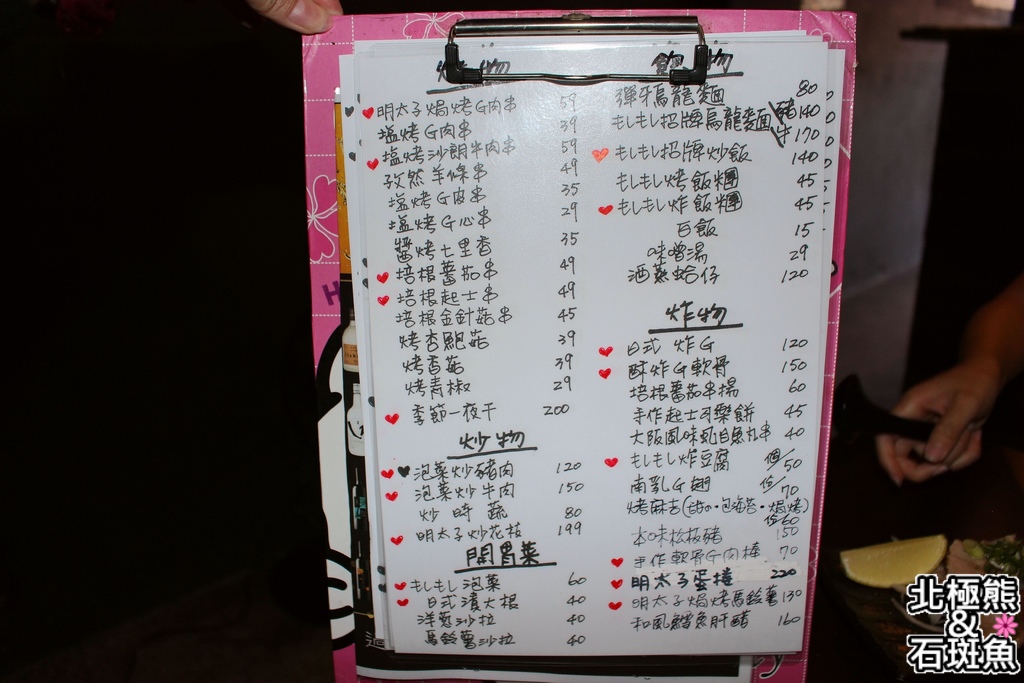 烤物
明太子焗烤G肉串 59
塩烤G肉串 39
塩烤沙朗牛肉串 59
孜然羊條串 49
塩烤G皮串 35
塩烤G心串 29
醬烤七里香 35
培根蕃茄串 49
培根起士串 49
培根金針菇串 45
烤杏鮑菇 39
烤香菇 39
烤青椒 29
季節一夜干 200
炒物
泡菜炒豬肉 120
泡菜炒牛肉 150
炒時蔬 80
明太子炒花枝 199
開胃菜
もしもし泡菜 60
日式漬大根 40
洋蔥沙拉 40
馬鈴薯沙拉 40
飯物
彈牙烏龍麵 80
もしもし招牌烏龍麵 豬140
牛170
もしもし招牌炒飯 140
もしもし烤飯糰 45
もしもし炸飯糰 45
白飯 15
味噌湯 29
酒蒸蛤仔 120
炸物
日式炸G 120
酥炸G軟骨 150
培根蕃茄串揚 60
手作起士可樂餅 45
大阪風味虱目魚丸串 40
もしもし炸豆腐 個/50
南乳G翅 份/70
烤麻吉(甜の・包海苔・焗烤)
份60
本味松板豬 150
手作軟骨G肉棒 70
明太子蛋捲 220
明太子焗烤馬鈴薯 130
和風鱈魚肝醋 160
北極熊
&
石斑魚